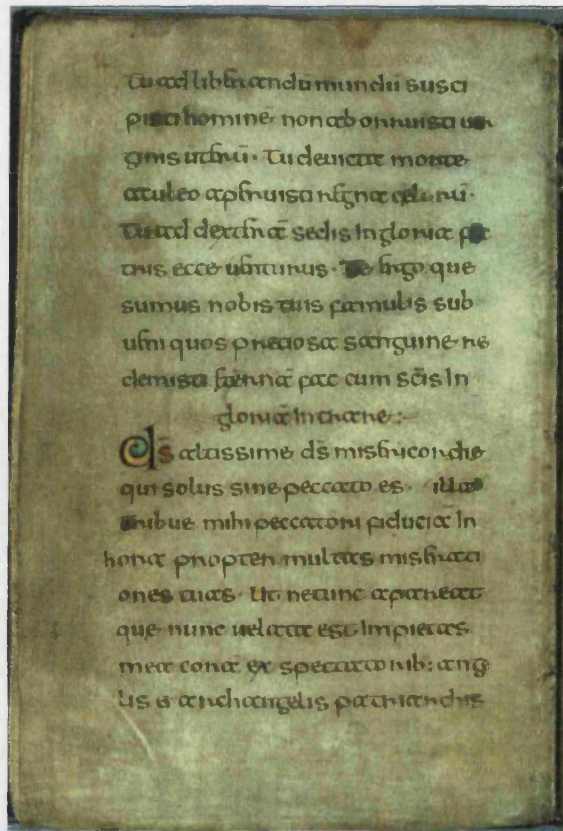 Tu ad liberandū mundū susci
pisti hominē non aborruisti uir
ginis uterū · Tu deuictae morte
aculeo aperuisti regna celorū ·
Tu ad dexterā dei sedis in gloria pa
tris ecce uenturus · Te ergo que
sumus nobis tuis famulis sub
ueni quos pretioso sanguine re
demisti eternā fac cum scīs in
gloria intrare :
Dš altissime dš misericordie
qui solus sine peccato es · illa
tribue mihi peccatori fiducia In
hora propter multas miserati
ones tuas · Ut ne tunc apareat
que nunc uelata est Impietas
mea cora ex spectatorib: ang
lis & archangelis patriarchis